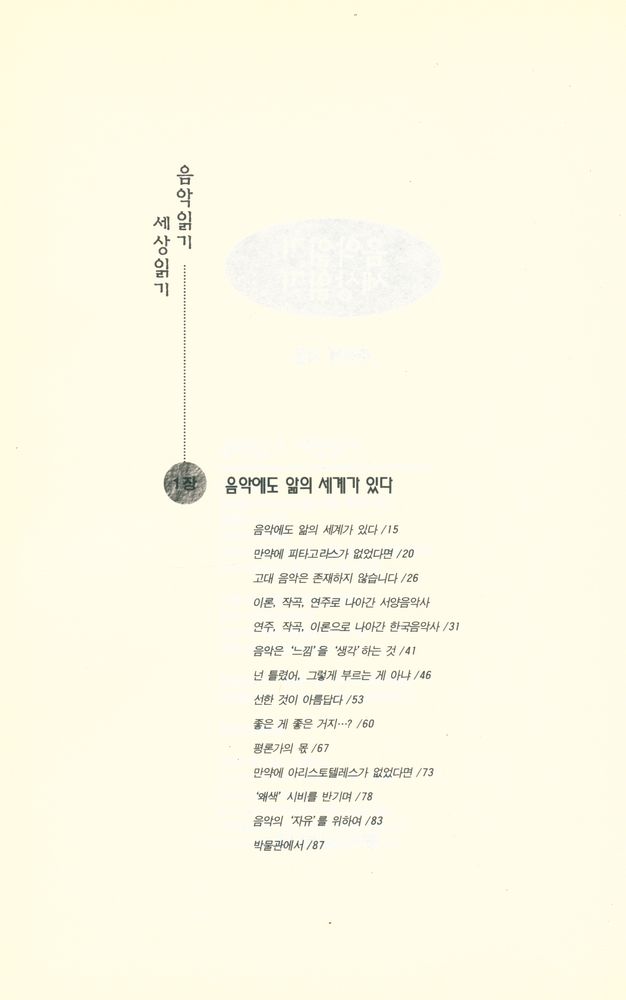 음악읽기
세상읽기
1장
음악에도 앎의 세계가 있다
음악에도 앎의 세계가 있다 /15
만약에 피타고라스가 없었다면 /20
고대 음악은 존재하지 않습니다 /26
이론, 작곡, 연주로 나아간 서양음악사
연주, 작곡, 이론으로 나아간 한국음악사 /31
음악은 '느낌'을 '생각'하는 것 /41
넌 틀렸어, 그렇게 부르는 게 아냐 /46
선한 것이 아름답다 /53
좋은 게 좋은 거지…? /60
평론가의 몫 /67
만약에 아리스토텔레스가 없었다면 /73
'왜색' 시비를 반기며 /78
음악의 '자유'를 위하여 /83
박물관에서 /87